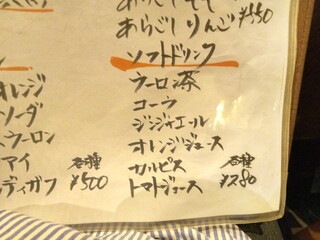 あらごしりんご ¥550
ソフトドリンク
ウーロン茶
コーラ
ジンジャエール
オレンジジュース
カルピス 各種
トマトジュース ¥280
オレンジ
ソーダ
ウーロン
アイ 各種
ディガフ ¥500